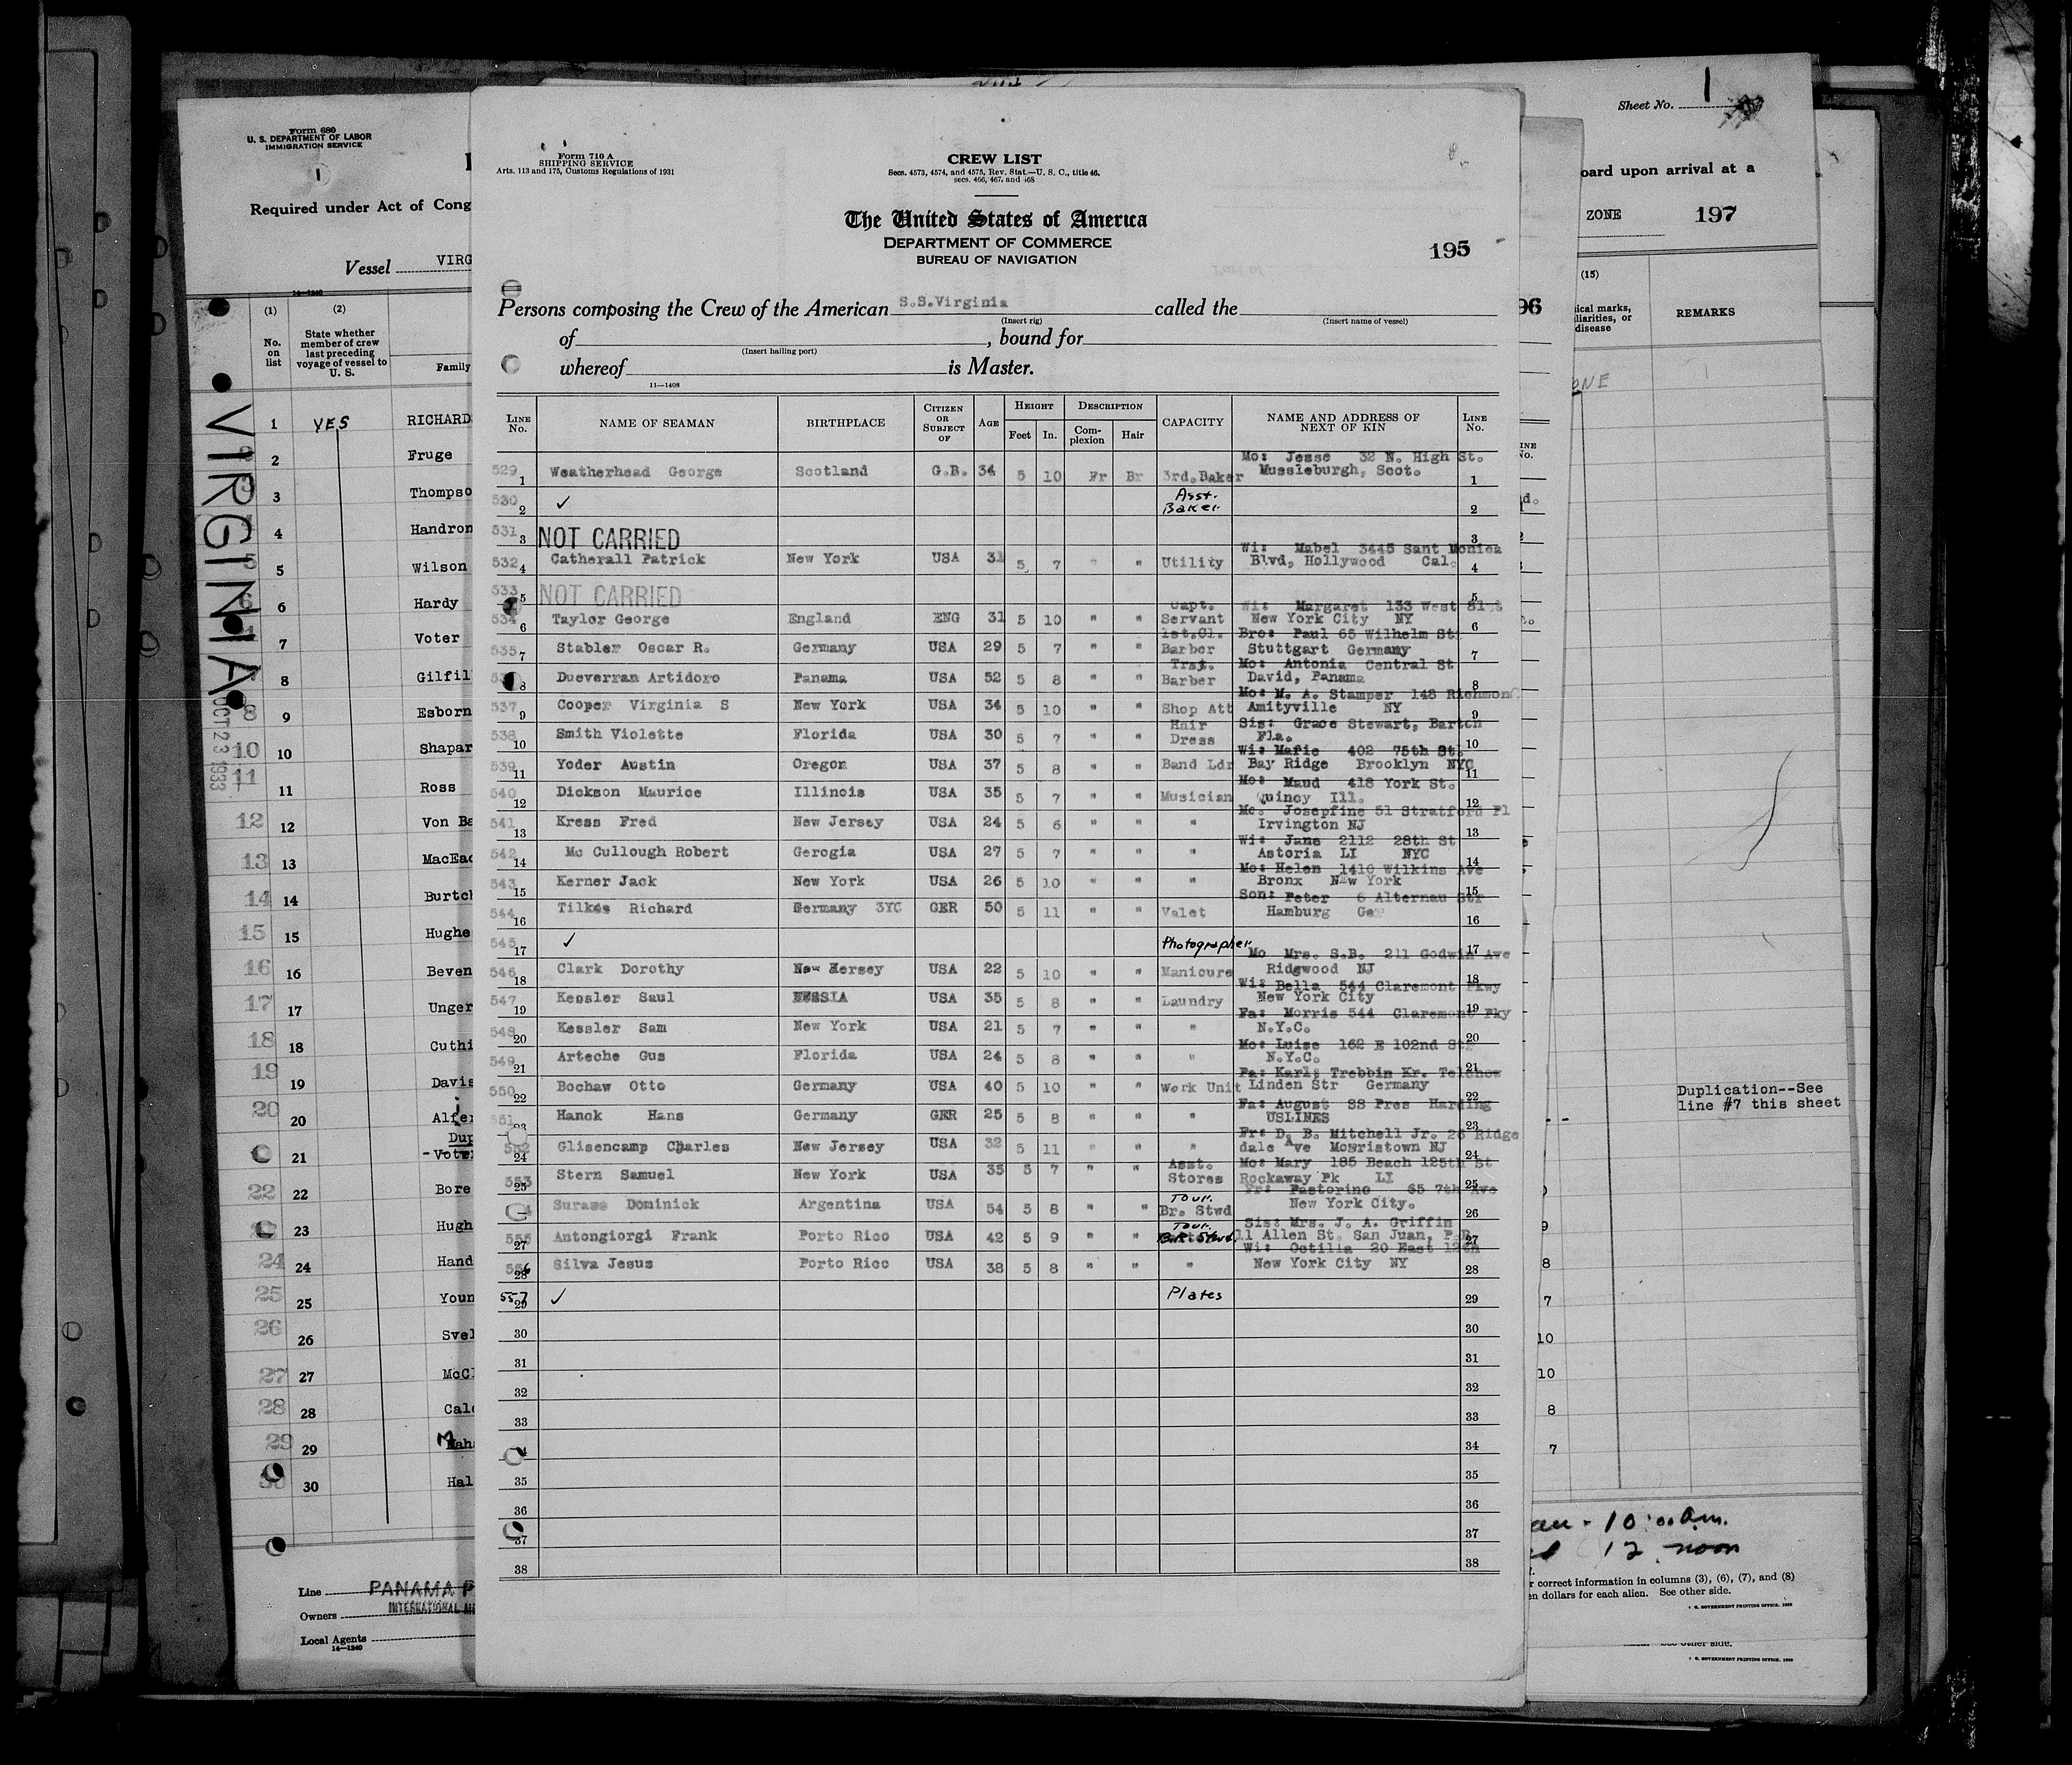 Form 680
U. S. DEPARTMENT OF LABOR
IMMIGRATION SERVICE
1
Required under Act of Cong
Vessel VIRG
14—1240
(1) (2)
No. on list
State whether member of crew last preceding voyage of vessel to U. S.
Family
1 YES RICHARD
2 Fruge
3 Thompso
4 Handron
5 Wilson
6 Hardy
7 Voter
8 Gilfil
9 Esborn
10 Shapar
11 Ross
12 Von Ba
13 MacEac
14 Burtch
15 Hughe
16 Beven
17 Unger
18 Cuthi
19 Davis
20 Alfer
Dup
21 -Vote
22 Bore
23 Hugh
24 Hand
25 Youn
26 Sve
27 McC
28 Cal
29 Mah
30 Hal
VIRGINIA
OCT 23 1933
Line PANAMA P
Owners INTERNATIONAL
Local Agents
14—1240
Form 710 A
SHIPPING SERVICE
Arts. 113 and 175, Customs Regulations of 1931
CREW LIST
Secs. 4573, 4574, and 4575, Rev. Stat.—U. S. C., title 46,
secs. 466, 467, and 468
The United States of America
DEPARTMENT OF COMMERCE
BUREAU OF NAVIGATION
195
Persons composing the Crew of the American S.S.Virginia called the
(Insert rig) (Insert name of vessel)
of , bound for
(Insert hailing port)
whereof is Master.
11—1408
LINE No. NAME OF SEAMAN BIRTHPLACE CITIZEN OR SUBJECT OF AGE HEIGHT Feet In. DESCRIPTION Complexion Hair CAPACITY NAME AND ADDRESS OF NEXT OF KIN LINE No.
529 1 Weatherhead George Scotland G.B. 34 5 10 Fr Br 3rd.Baker Mo: Jesse 32 N. High St. Mussleburgh, Scot. 1
530 2 ✓ Asst. Baker 2
531 3 NOT CARRIED 3
532 4 Catherall Patrick New York USA 31 5 7 " " Utility Wi: Mabel 3445 Sant Monica Blvd, Hollywood Cal. 4
533 5 NOT CARRIED 5
534 6 Taylor George England ENG 31 5 10 " " Capt. Servant Wi: Margaret 133 West 81st New York City NY 6
535 7 Stabler Oscar R. Germany USA 29 5 7 " " 1st.Cl. Barber Bro: Paul 65 Wilhelm St Stuttgart Germany 7
8 Dueverran Artidoro Panama USA 52 5 8 " " Trst. Barber Mo: Antonia Central St David, Panama 8
537 9 Cooper Virginia S New York USA 34 5 10 " " Shop Att Mo: M. A. Stamper 148 Richmond Amityville NY 9
538 10 Smith Violette Florida USA 30 5 7 " " Hair Dress Sis: Grace Stewart, Bartch Fla. 10
539 11 Yoder Austin Oregon USA 37 5 8 " " Band Ldr Wi: Marie 402 75th St. Bay Ridge Brooklyn NYC 11
540 12 Dickson Maurice Illinois USA 35 5 7 " " Musician Mo: Maud 418 York St. Quincy Ill. 12
541 13 Kress Fred New Jersey USA 24 5 6 " " " Mo: Josepfine 51 Stratford Pl Irvington NJ 13
542 14 Mc Cullough Robert Gerogia USA 27 5 7 " " " Wi: Jane 2112 28th St Astoria LI NYC 14
543 15 Kerner Jack New York USA 26 5 10 " " " Mo: Helen 1410 Wilkins Ave Bronx New York 15
544 16 Tilkes Richard Germany 3YC GER 50 5 11 " " Valet Son: Peter 6 Alternau Str Hamburg Ger 16
545 17 ✓ Photographer 17
546 18 Clark Dorothy New Jersey USA 22 5 10 " " Manicure Mo Mrs. S.B. 211 Godwin Ave Ridgwood NJ 18
547 19 Kessler Saul USA 35 5 8 " " Laundry Wi: Bella 544 Claremont Pkwy New York City 19
548 20 Kessler Sam New York USA 21 5 7 " " " Fa: Morris 544 Claremont Pky N.Y.C. 20
549 21 Arteche Gus Florida USA 24 5 8 " " " Mo: Luise 162 E 102nd St N.Y.C. 21
550 22 Bochaw Otto Germany USA 40 5 10 " " Work Unit Fa: Karl; Trebbin Kr. Teltchow Linden Str Germany 22
551 23 Hanck Hans Germany GER 25 5 8 " " " Fa: August SS Pres Harding USLINES 23
552 24 Glisencamp Charles New Jersey USA 32 5 11 " " " Fr: D. B. Mitchell Jr. 26 Ridge dale Ave Morristown NJ 24
553 25 Stern Samuel New York USA 35 5 7 " " Asst. Stores Mo: Mary 185 Beach 125th St Rockaway Pk LI 25
Surase Dominick Argentina USA 54 5 8 " " Tour. Br. Stwd Fr: Pastorino 65 7th Ave New York City. 26
555 27 Antongiorgi Frank Porto Rico USA 42 5 9 " " Tour. Bar. Stwd. Sis: Mrs. J. A. Griffin 11 Allen St. San Juan, P.R. 27
556 28 Silva Jesus Porto Rico USA 38 5 8 " " " Wi: Octilla 20 East 12th New York City NY 28
557 29 ✓ Plates 29
30 30
31 31
32 32
33 33
34
35 35
36 36
37 37
38 38
Sheet No. 1
oard upon arrival at a
ZONE 197
96
(15)
ical marks, liarities, or disease
REMARKS
ONE
Duplication--See
line #7 this sheet
9
8
7
10
10
8
7
10:00 a.m.
12 noon
r correct information in columns (3), (6), (7), and (8)
en dollars for each alien. See other side.
U. S. GOVERNMENT PRINTING OFFICE
See other side.
U. S. GOVERNMENT PRINTING OFFICE